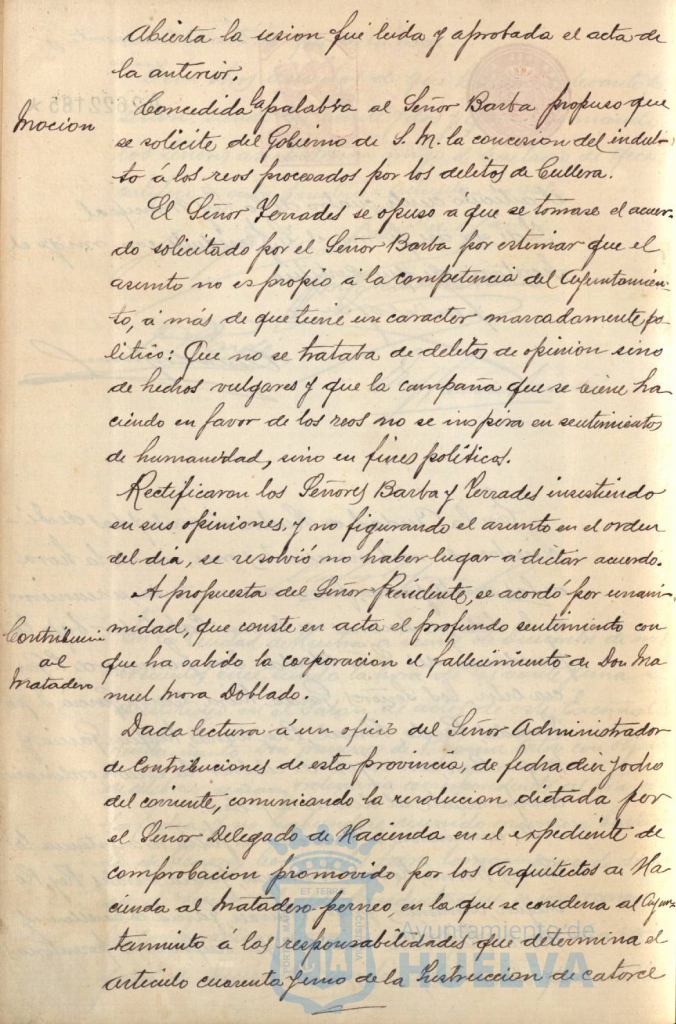 Abierta la sesion fué leida y aprobada el acta de
la anterior.
Mocion
Concedida la palabra al Señor Barba propuso que
se solicite del Gobierno de S. M. la concesion del indul-
to á los reos procesados por los delitos de Cullera.
El Señor Terrades se opuso á que se tomase el acuer-
do solicitado por el Señor Barba por estimar que el
asunto no es propio á la competencia del Ayuntamien-
to, á más de que tiene un caracter marcadamente po-
litico: Que no se trataba de delitos de opinion sino
de hechos vulgares y que la campaña que se viene ha
ciendo en favor de los reos no se inspira en sentimientos
de humanidad, sino en fines politicos.
Rectificaron los Señores Barba y Terrades insistiendo
en sus opiniones, y no figurando el asunto en el orden
del dia, se resolvió no haber lugar á dictar acuerdo.
A propuesta del Señor Presidente, se acordó por unani-
midad, que conste en acta el profundo sentimiento con
que ha sabido la corporacion el fallecimiento de Don Ma
nuel Mora Doblado.
Contribucion
al
Matadero
Dada lectura á un oficio del Señor Administrador
de Contribuciones de esta provincia, de fecha diez y ocho
del corriente, comunicando la resolucion dictada por
el Señor Delegado de Hacienda en el expediente de
comprobacion promovido por los Arquitectos de Ha
cienda al Matadero perneo, en la que se condena al Ayun-
tamiento á las responsabilidades que determina el
articulo cuarenta y uno de la Instruccion de catorce
Ayuntamiento de
HUELVA